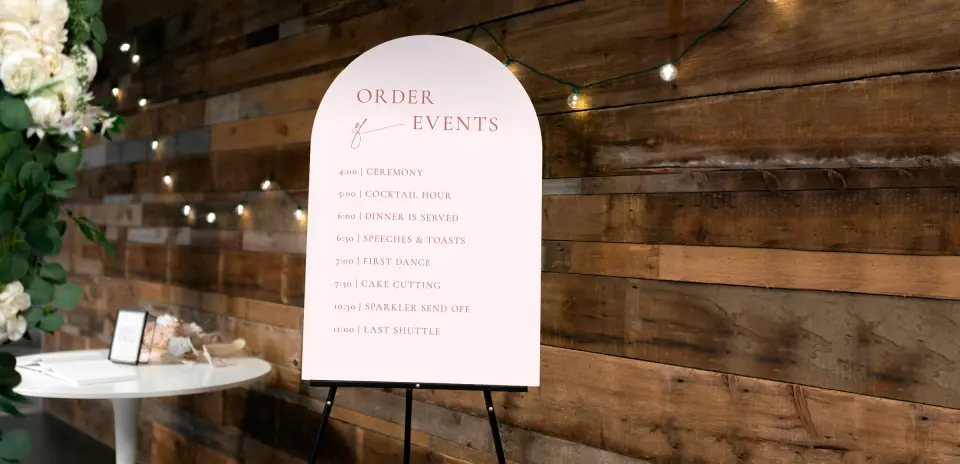 ORDER
of EVENTS
4:00 | CEREMONY
5:00 | COCKTAIL HOUR
6:00 | DINNER IS SERVED
6:30 | SPEECHES & TOASTS
7:00 | FIRST DANCE
7:30 | CAKE CUTTING
10:30 | SPARKLER SEND OFF
11:00 | LAST SHUTTLE